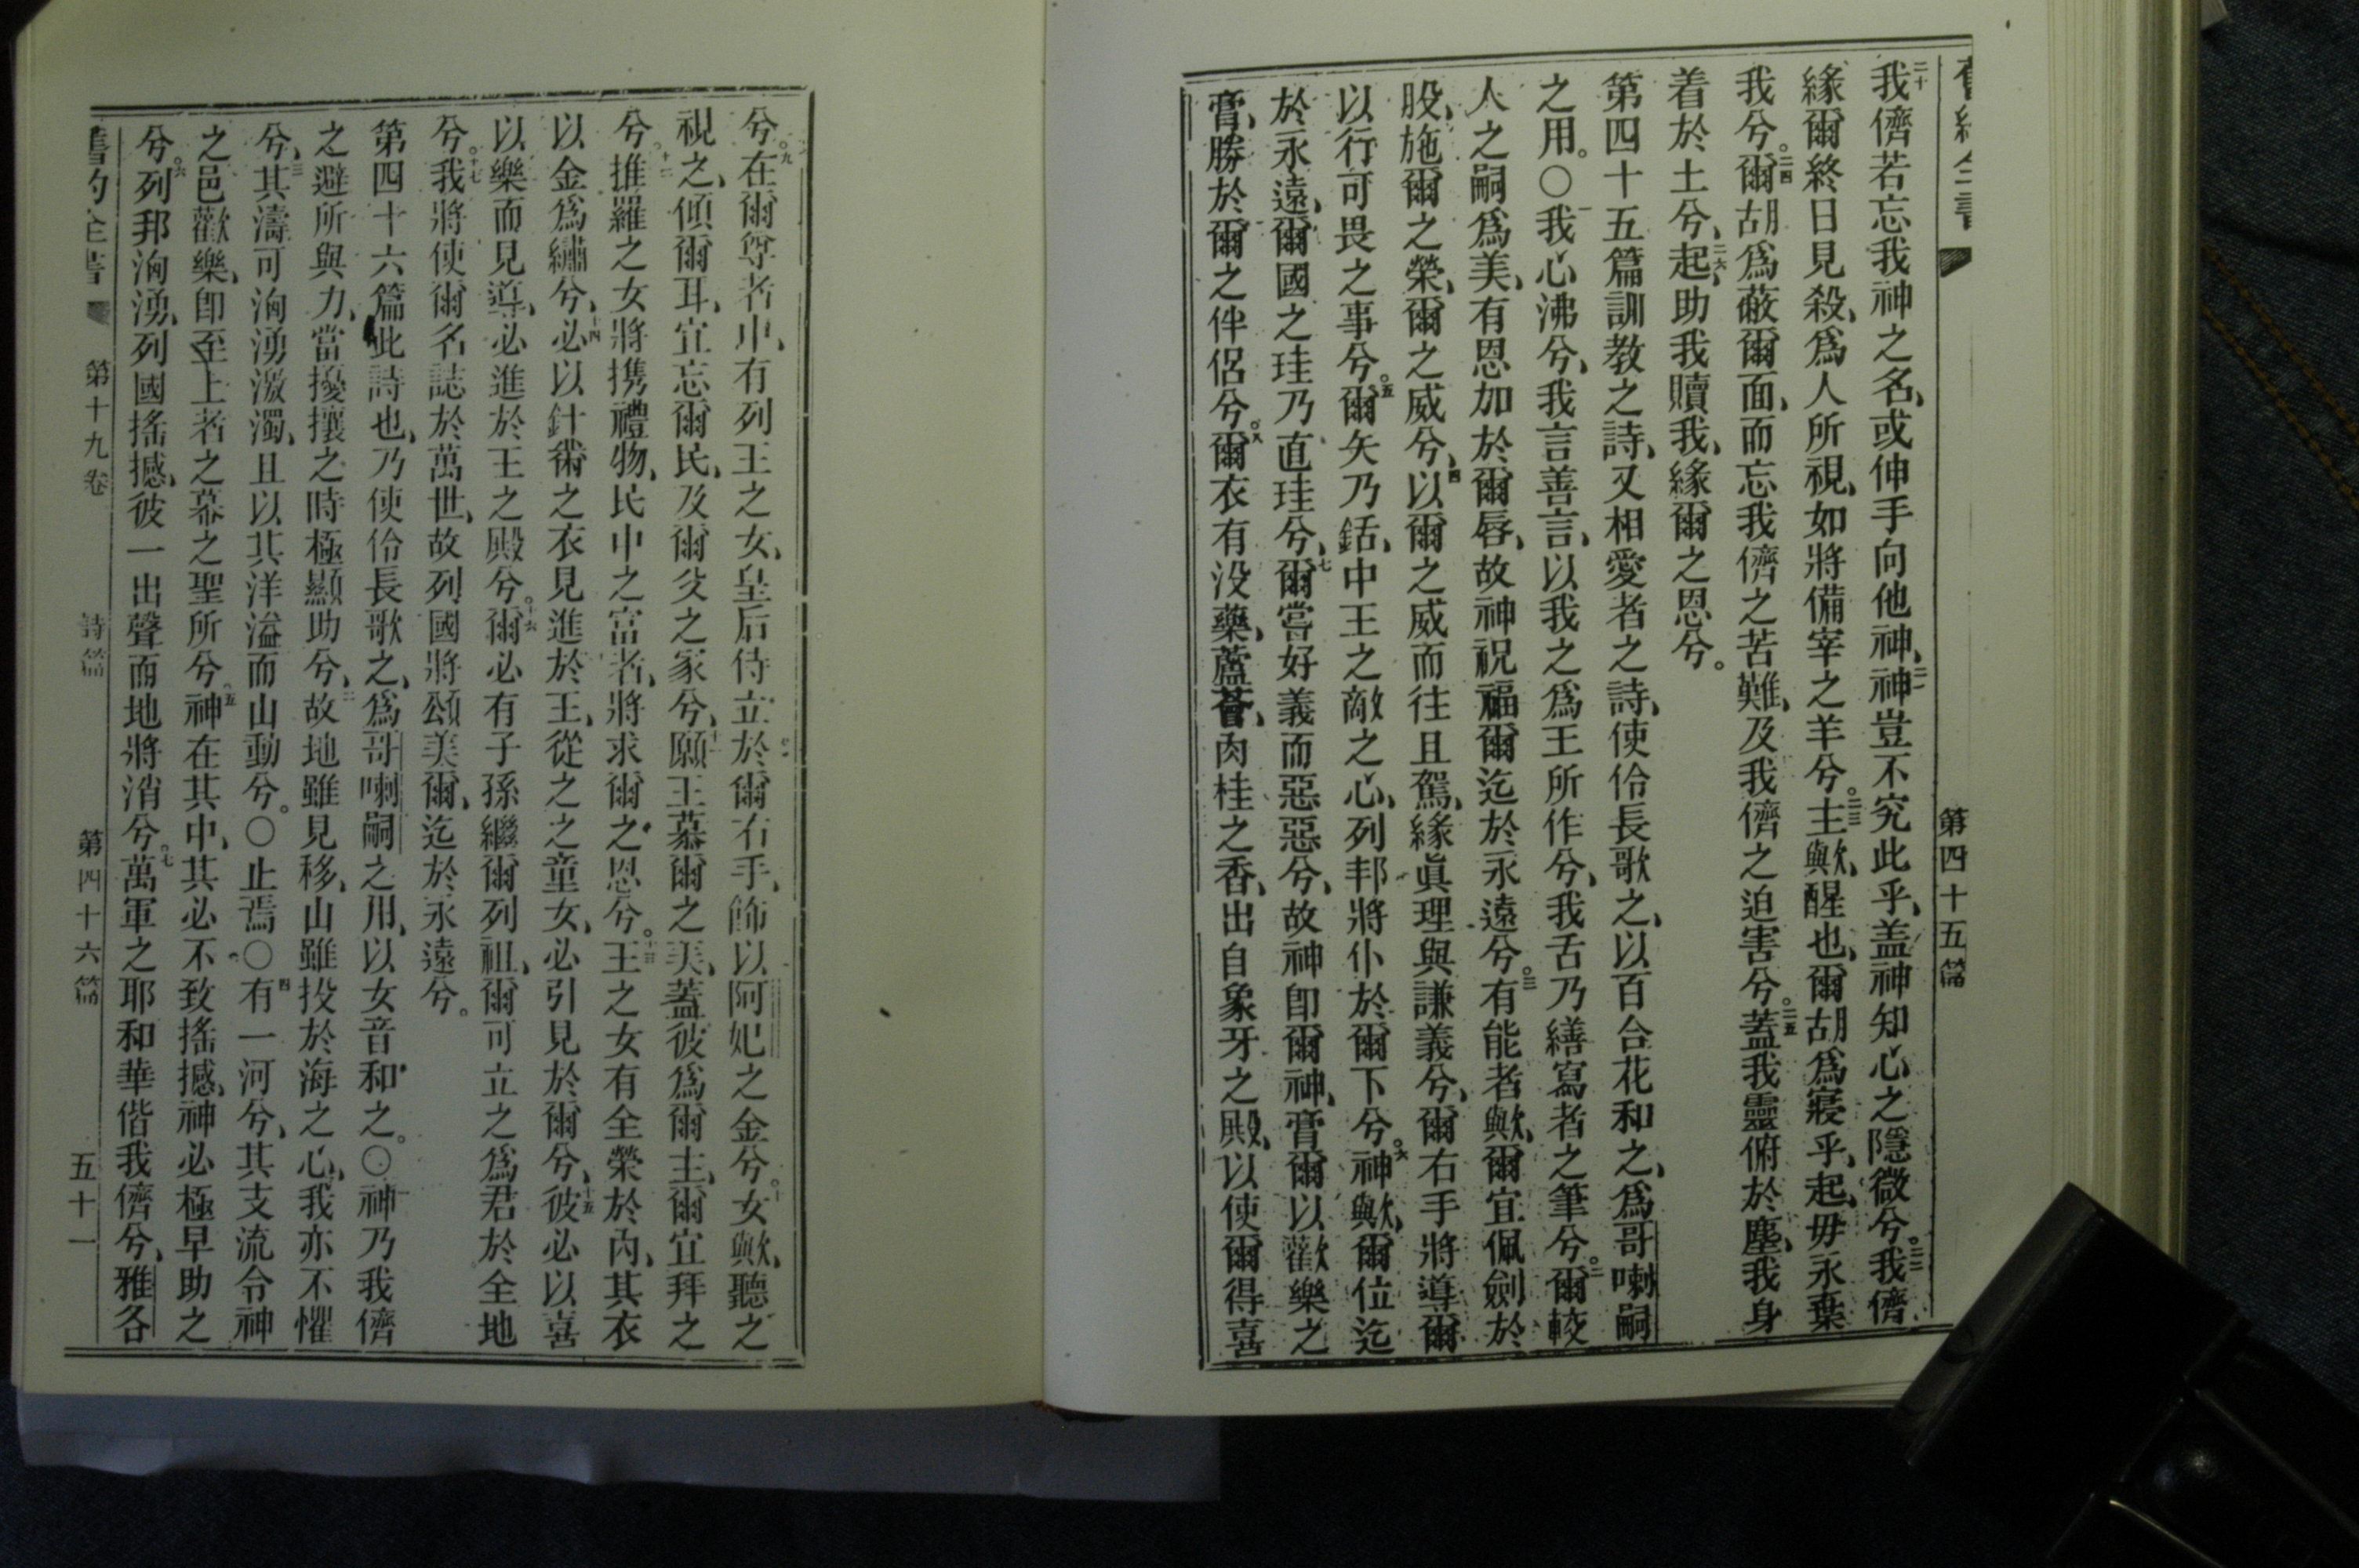 第四十五篇
我儕若忘我神之名、或伸手向他神、神豈不究此乎、盖神知心之隱微兮。我儕
緣爾終日見殺、爲人所視、如將備宰之羊兮。主歟、醒也、爾胡爲寢乎、起、毋永棄
我兮。爾胡爲蔽爾面、而忘我儕之苦難、及我儕之迫害兮。蓋我靈俯於塵、我身
着於土兮、起、助我贖我、緣爾之恩兮。
第四十五篇訓教之詩、又相愛者之詩、使伶長歌之、以百合花和之、爲哥喇嗣
之用。○我心沸兮、我言善言、以我之爲王所作兮、我舌乃繕寫者之筆兮。爾較
人之嗣爲美、有恩加於爾唇、故神祝福爾迄於永遠兮。有能者歟、爾宜佩劍於
股、施爾之榮、爾之威兮、以爾之威而往且駕、緣眞理與謙義兮、爾右手將導爾
以行可畏之事兮。爾矢乃銛、中王之敵之心、列邦將仆於爾下兮。神歟、爾位迄
於永遠、爾國之珪乃直珪兮、爾嘗好義而惡惡兮、故神卽爾神、膏爾以歡樂之
膏、勝於爾之伴侶兮。爾衣有没藥、蘆薈、肉桂之香、出自象牙之殿、以使爾得喜
兮。在爾尊者中、有列王之女、皇后侍立於爾右手、飾以阿妃之金兮。女歟、聽之
視之、傾爾耳、宜忘爾民、及爾父之家兮、願王慕爾之美、蓋彼爲爾主、爾宜拜之
兮。推羅之女將携禮物、民中之富者、將求爾之恩兮。王之女有全榮於內、其衣
以金爲繡兮、必以針黹之衣見進於王、從之之童女、必引見於爾兮、彼必以喜
以樂而見導、必進於王之殿兮。爾必有子孫繼爾列祖、爾可立之爲君於全地
兮。我將使爾名誌於萬世、故列國將頌美爾、迄於永遠兮。
第四十六篇此詩也、乃使伶長歌之、爲哥喇嗣之用、以女音和之。○神乃我儕
之避所與力、當擾攘之時極顯助兮、故地雖見移、山雖投於海之心、我亦不懼
兮、其濤可洶湧激濁、且以其洋溢而山動兮。○止焉○有一河兮、其支流令神
之邑歡樂、卽至上者之幕之聖所兮。神在其中、其必不致搖撼、神必極早助之
兮。列邦洶湧、列國搖撼、彼一出聲而地將消兮。萬軍之耶和華偕我儕兮、雅各
第十九卷 詩篇 第四十六篇 五十一